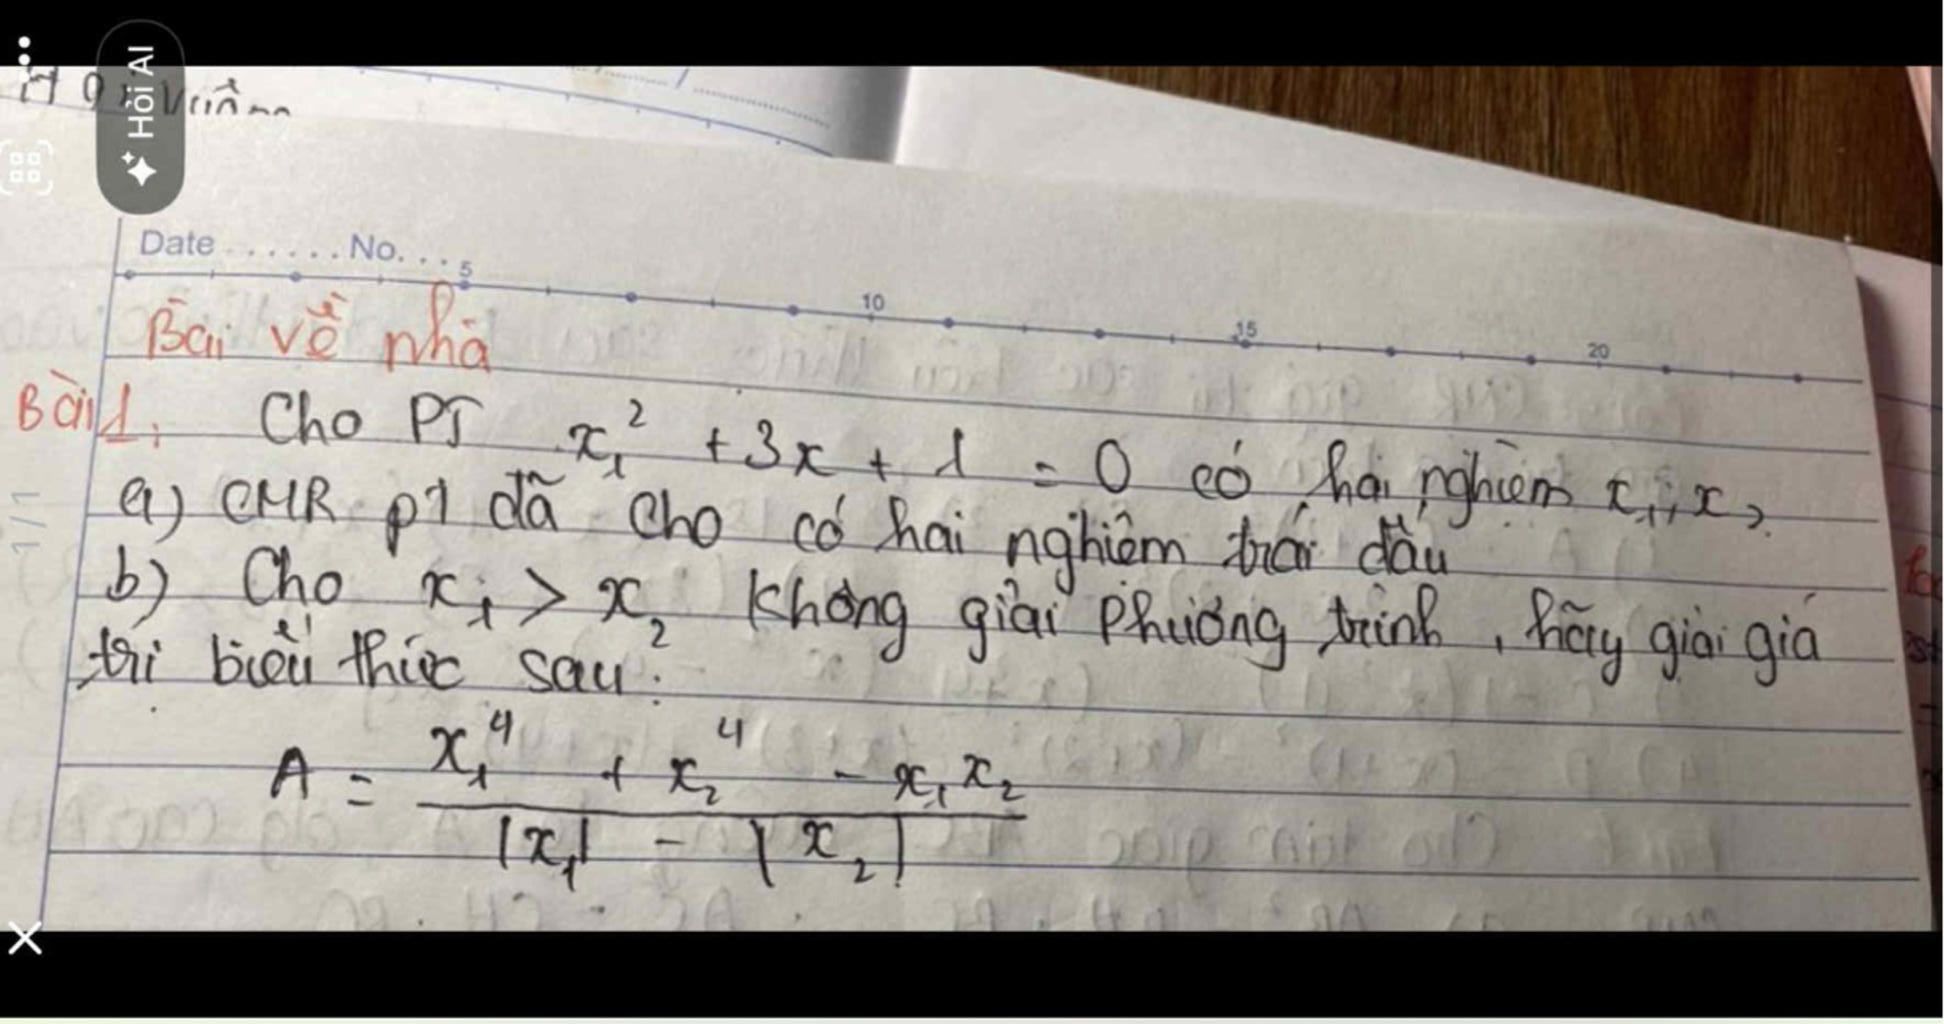 Hỏi AI
Date ...... No. ...
5 10 15 20
Bài về nhà
Bài 1. Cho PT x₁² + 3x + 1 = 0 có hai nghiệm x₁, x₂
a) CMR pt đã cho có hai nghiệm trái dấu
b) Cho x₁ > x₂ không giải phương trình, hãy giải giá
trị biểu thức sau:
A = (x₁⁴ + x₂⁴ - x₁x₂) / (|x₁| - |x₂|)
1/1